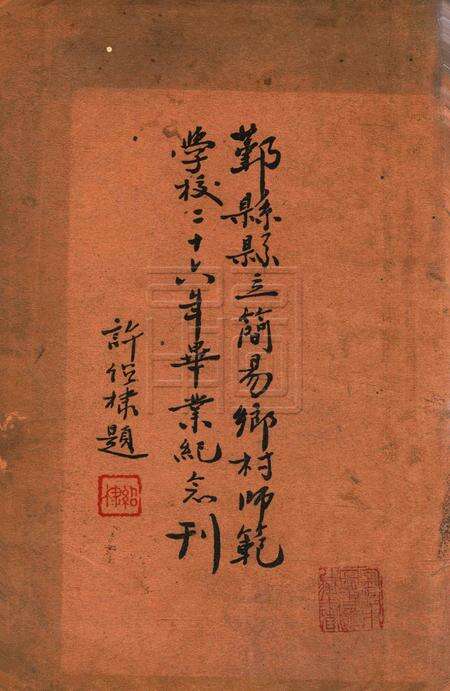 鄞縣縣立簡易鄉村師範
学校二十六年畢業紀念刊
許绍棣題